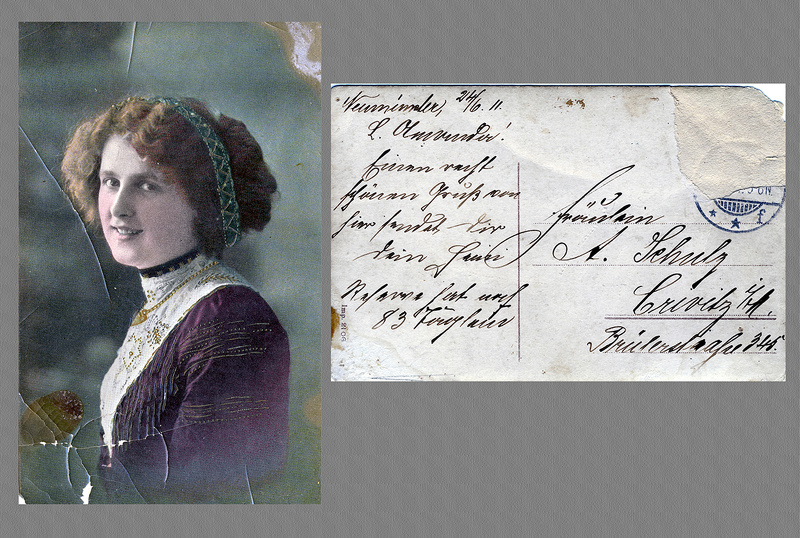 Neumünster, 24/6. 11.
L. Amanda!
Einen recht
schönen Gruß von
hier sendet dir
dein Henri
Reserve hat noch
83 Täglein
Fräulein
A. Schulz
Crivitz i/M.
Brülerstraße 245
Imp.